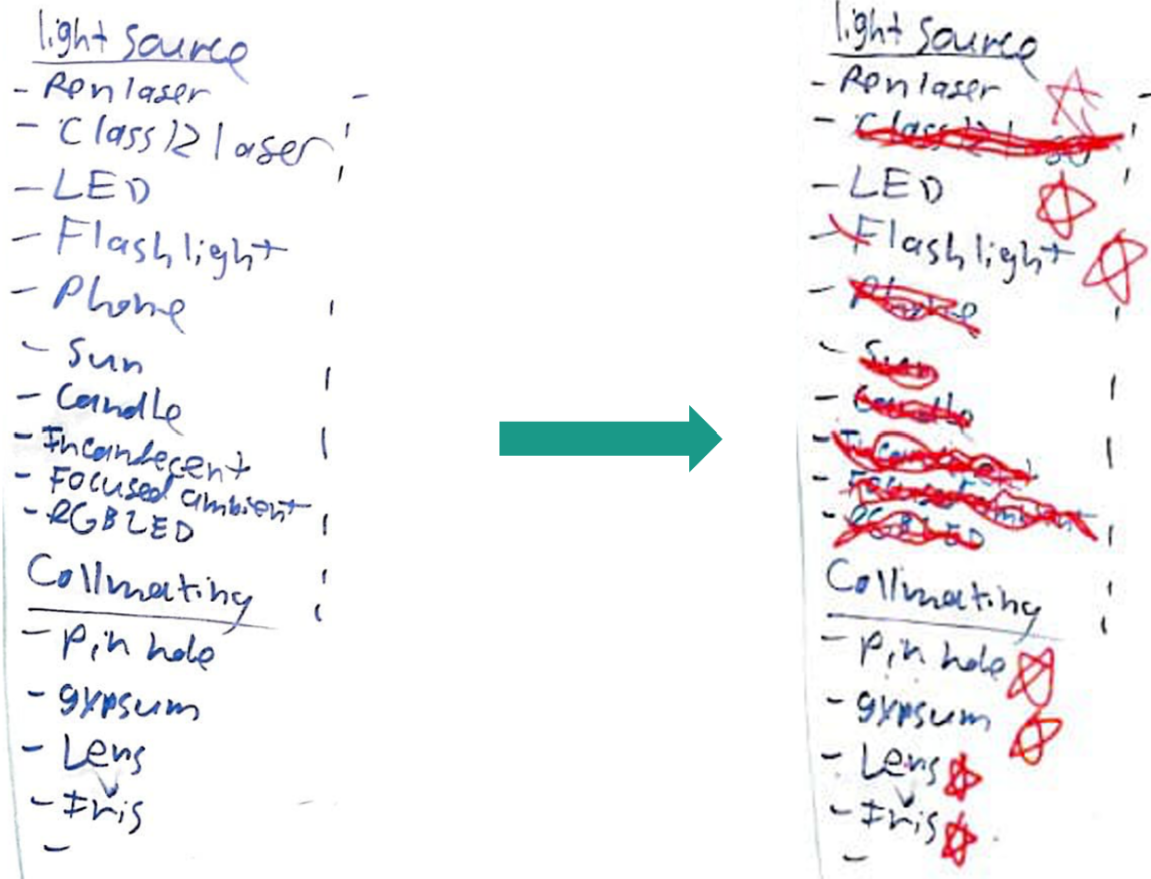 light source
- Pen laser
- Class 12 laser
- LED
- Flashlight
- Phone
- Sun
- Candle
- Incandecent
- Focused ambient
- RGB LED
Collmating
- Pin hole
- gypsum
- Lens
- Iris
-
light source
- Pen laser
- Class 12 laser
- LED
- Flashlight
- Phone
- Sun
- Candle
- Incandecent
- Focused ambient
- RGB LED
Collimating
- Pin hole
- gypsum
- Lens
- Iris
-